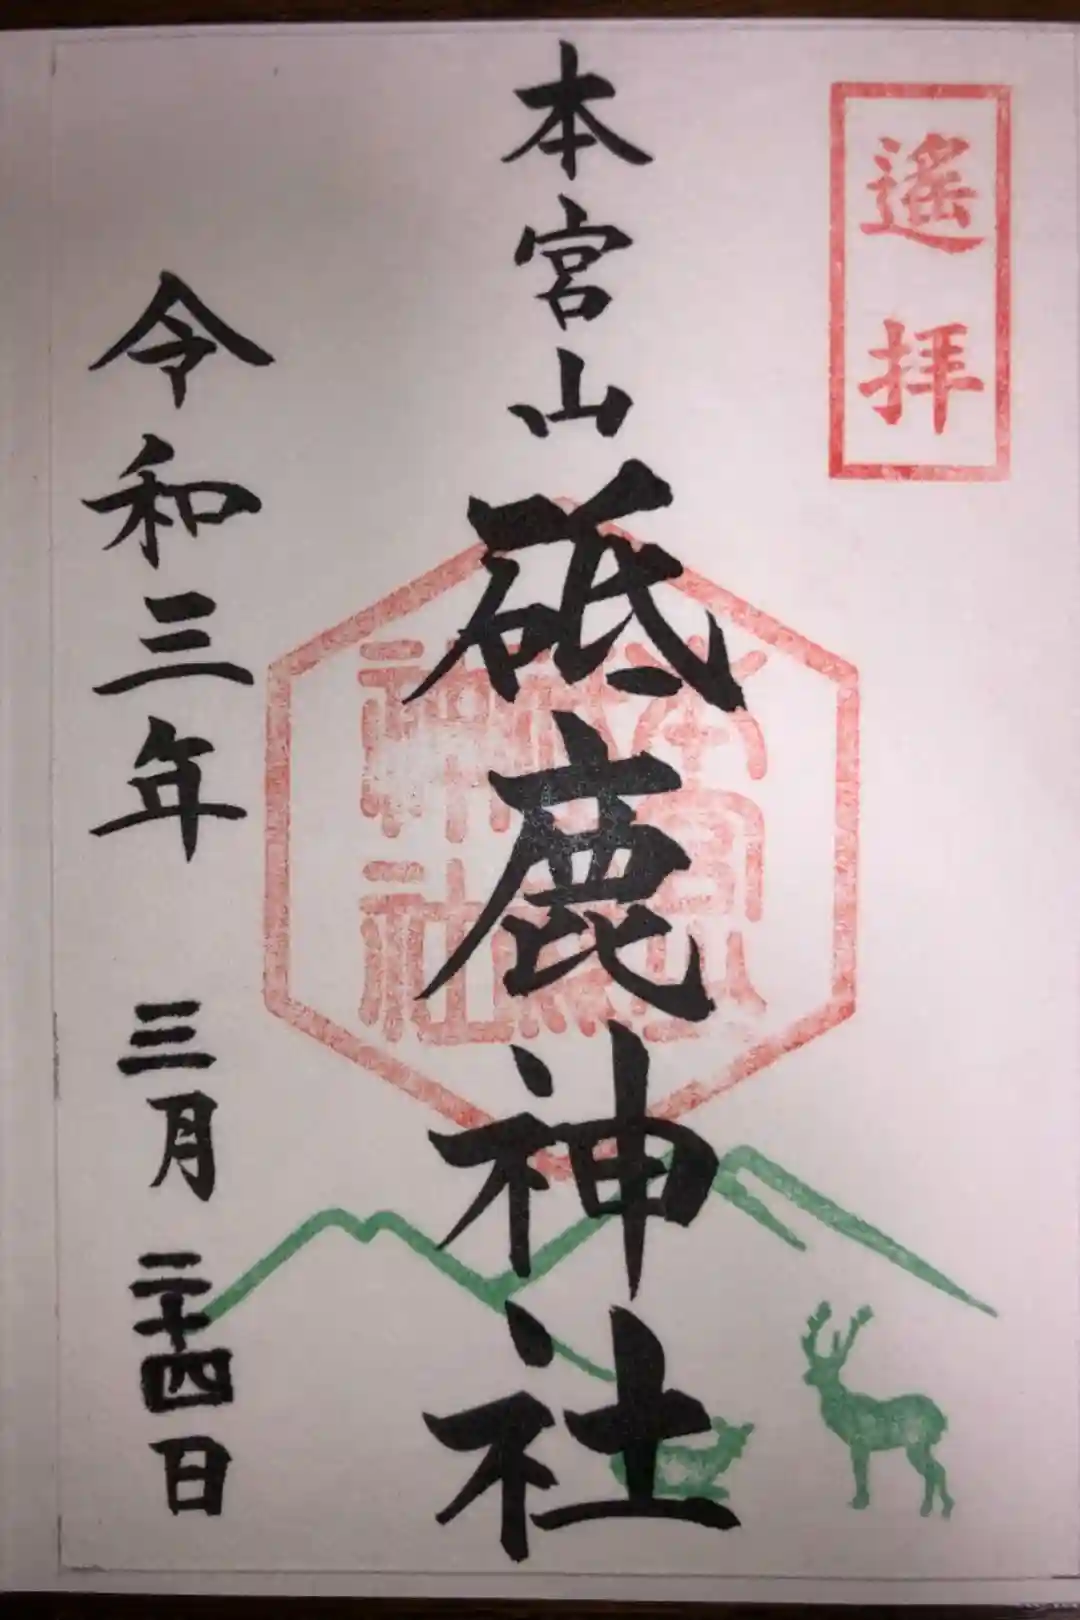 遙拝
本宮山
砥鹿神社
令和三年 三月 二十四日